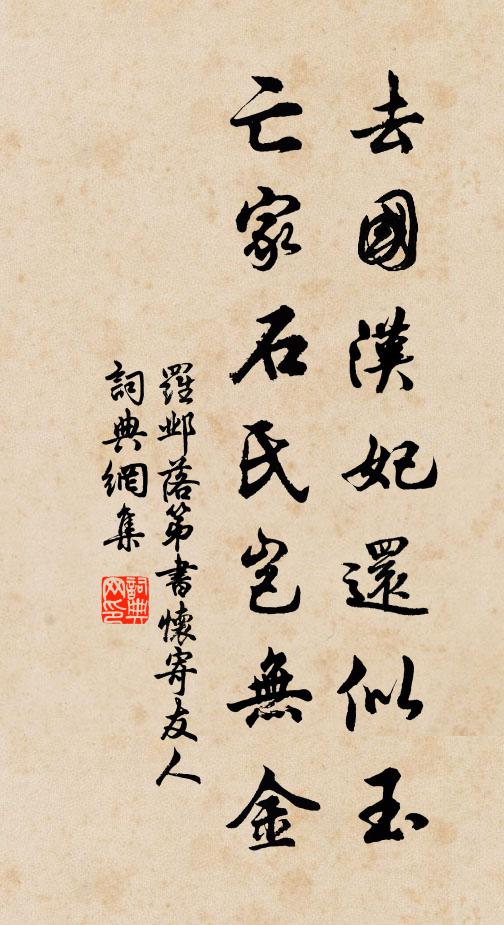 去國漢妃還似玉
亡家石氏豈無金
羅邺落第書懷寄友人
詞典網集
詞典
文印